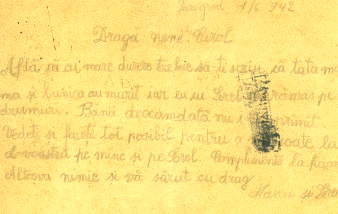 1/6 942
Dragă nene Carol
Află că cu mare durere trebuie să-ți scriu, că tata ma
ma și bunica au murit iar eu cu Srol am rămas pe
drumuri. Banii deocamdată nu primit
Vedeți și faceți tot posibil pentru a scoate la
d-voastră pe mine și pe Srol. Complimente la
Altceva nimic și vă sărut cu drag
și